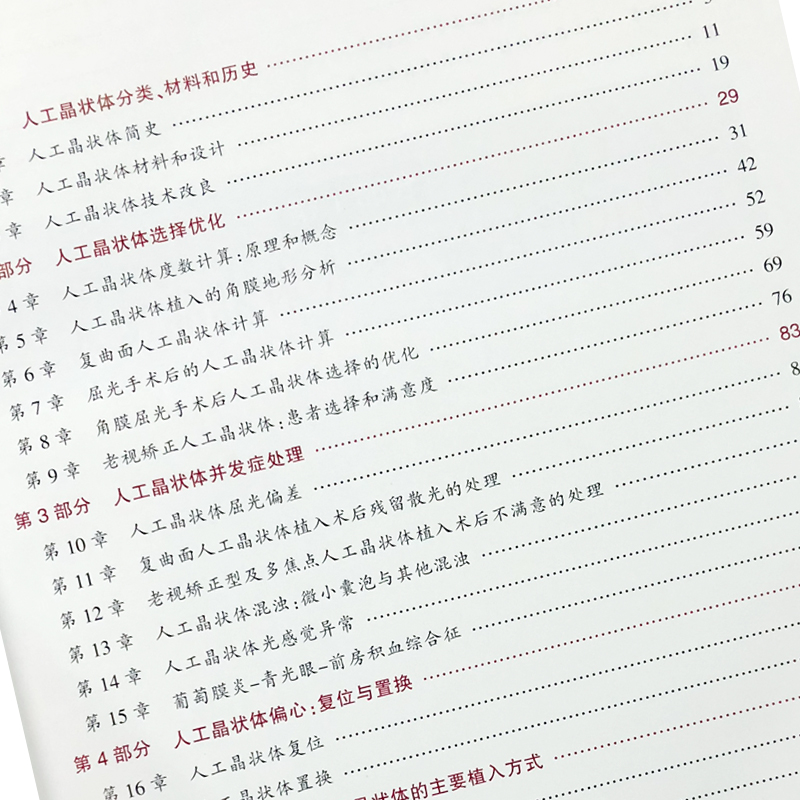 人工晶状体分类、材料和历史
章 人工晶状体简史
章 人工晶状体材料和设计 11
章 人工晶状体技术改良 19
部分 人工晶状体选择优化 29
4 章 人工晶状体度数计算:原理和概念 31
第 5 章 人工晶状体植入的角膜地形分析 42
第 6 章 复曲面人工晶状体计算 52
第 7 章 屈光手术后的人工晶状体计算 59
第 8 章 角膜屈光手术后人工晶状体选择的优化 69
第 9 章 老视矫正人工晶状体:患者选择和满意度 76
第 3 部分 人工晶状体并发症处理 83
第 10 章 人工晶状体屈光偏差
第 11 章 复曲面人工晶状体植入术后残留散光的处理
第 12 章 老视矫正型及多焦点人工晶状体植入术后不满意的处理
第 13 章 人工晶状体混浊:微小囊泡与其他混浊
第 14 章 人工晶状体光感觉异常
第 15 章 葡萄膜炎-青光眼-前房积血综合征
第 4 部分 人工晶状体偏心:复位与置换
第 16 章 人工晶状体复位
晶状体置换
晶状体的主要植入方式